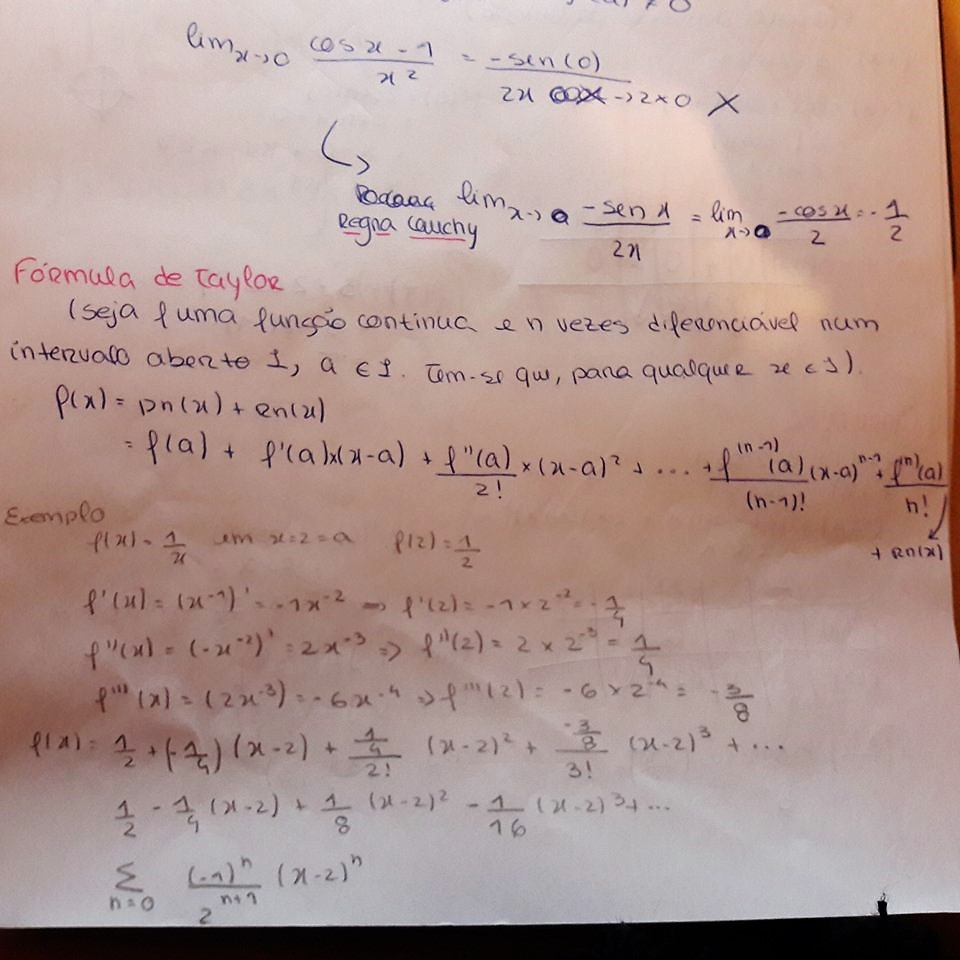 ≠ 0
lim x→0 (cos x - 1)/x² = -sen(0)/(2x → 2×0) X
lim x→0 -sen x/2x = lim x→0 -cos x/2 = -1/2
Regra Cauchy
Fórmula de Taylor
(seja f uma função continua e n vezes diferenciável num
intervalo aberto I, a ∈ I. Tem-se que, para qualquer x ∈ I).
f(x) = pn(x) + Rn(x)
= f(a) + f'(a)×(x-a) + f''(a)/2! × (x-a)² + ... + f^(n-1)(a)/(n-1)! (x-a)^(n-1) + f^(n)(a)/n!
+ Rn(x)
Exemplo
f(x) = 1/x em x=2=a f(2) = 1/2
f'(x) = (x^-1)' = -1x^-2 => f'(2) = -1×2^-2 = -1/4
f''(x) = (-x^-2)' = 2x^-3 => f''(2) = 2 × 2^-3 = 1/4
f'''(x) = (2x^-3) = -6x^-4 => f'''(2) = -6 × 2^-4 = -3/8
f(x) = 1/2 + (-1/4)(x-2) + (1/4)/2! (x-2)² + (-3/8)/3! (x-2)³ + ...
1/2 - 1/4 (x-2) + 1/8 (x-2)² - 1/16 (x-2)³ + ...
Σ n=0 (-1)^n/2^(n+1) (x-2)^n